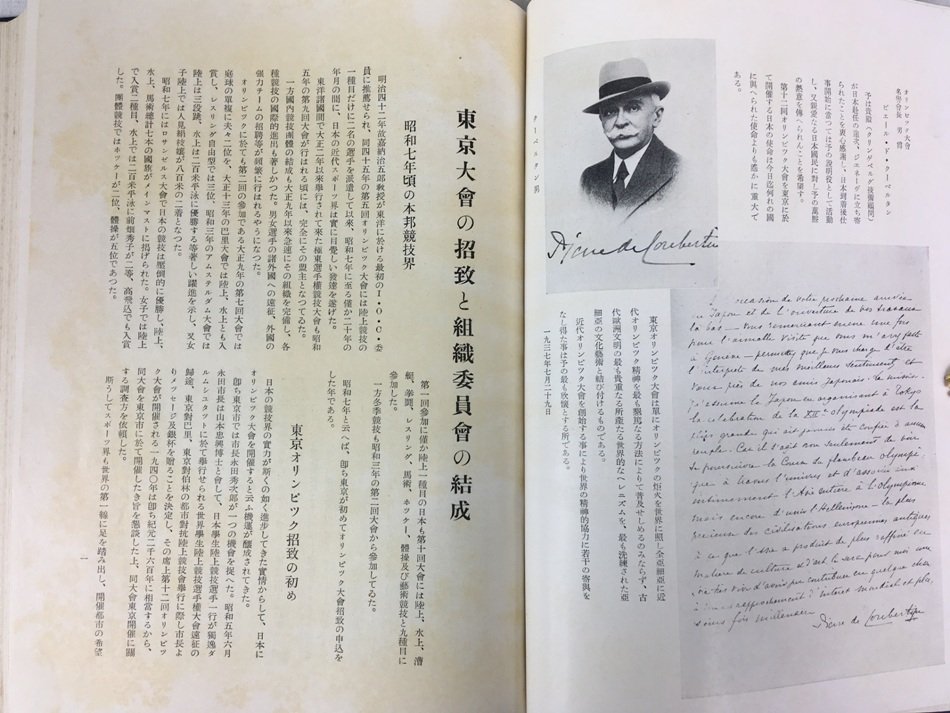 名譽會長
ピエール・デ・クーベルタン
予は貴殿(クリンゲベルグ技術顧問)
が日本赴任の途次、ジエネーヴに立ち寄
られたことを衷心感謝し、日本到着後仕
事開始に當つては予の說明役として活動
し、又親愛なる日本國民に對し予の萬腔
の熱意を傳へられんことを希望す。
第十二回オリンピツク大會を東京に於
て開催する日本の使命は今日迄何れの國
に與へられた使命よりも遙かに重大で
ある。
クーベルタン男
Pierre de Coubertin
occasion de votre prochaine arrivée
au Japon et de l'ouverture de vos travaux
là bas — vous remerciant encore une fois
pour l'aimable visite que vous m'avez faite
à Genève — permettez que je vous charge d'être
l'interprète de mes meilleurs sentiments et
vœux près de nos amis Japonais. La mission
assume le Japon en organisant à Tokyo
la célébration de la XIIe Olympiade est la
plus grande qui ait jamais été confiée à aucun
peuple. Car il s'agit non seulement de
poursuivre la Course du flambeau olympique
à travers l'univers et d'associer
l'Asie entière à l'Olympisme
mais encore d'unir l'Hellénisme — la plus
précieuse des civilisations européennes antiques
à ce que l'Asie a produit de plus raffiné en
matière de culture et d'art. Ce sera pour moi une
d'avoir pu contribuer en quelque chose
à ce rapprochement d'intérêt mondial
Pierre de Coubertin
東京オリンピツク大會は單にオリンピツクの炬火を世界に照し全亞細亞に近
代オリンピツク精神を最も懇篤なる方法によりて普及せしめるのみならず、古
代歐洲文明の最も貴重なる所產たる世界的なヘレニズムを、最も洗練された亞
細亞の文化藝術と結び付けるものである。
近代オリンピツク大會を創始する事により世界の精神的協力に若干の寄與を
なし得た事は予の最も欣懷とする所である。
一九三七年七月二十九日
東京大會の招致と組織委員會の結成
昭和七年頃の本邦競技界
明治四十二年故嘉納治五郎敎授が東洋に於ける最初のI・O・C・委
員に推薦せられ、同四十五年の第五回オリンピツク大會には陸上競技の
一種目だけに二名の選手を派遣して以來、昭和七年に至る僅か二十年の
年月の間に、日本の近代スポーツ界は實に目覺しい發達を遂げた。
東洋諸國間で大正二年以來擧行されて來た極東選手權競技大會も昭和
五年の第九回大會が行はれる頃には、完全にその盟主となつてゐた。
一方國內競技團體の結成も大正九年以來急速にその組織を完備し、各
種競技の國際的進出も著しかつた。男女選手の諸外國への遠征、外國の
强力チームの招聘等が頻繁に行はれるやうになつた。
オリンピツクに於ても第二回の參加である大正九年の第七回大會では
庭球の單複に夫々二位を、大正十三年の巴里大會では陸上、水上とも入
賞し、レスリング自由型では三位、昭和三年のアムステルダム大會では
陸上は三段跳、水上は二百米平泳に優勝する等著しい躍進を示し、又女
子陸上では人見絹枝孃が八百米の二着となつた。
昭和七年にはロサンゼルス大會で日本の競技は壓倒的に優勝し、陸上、
水上、馬術總計七本の國旗がメインマストに揭げられた。女子では陸上
で入賞二種目、水上では二百米平泳に前畑秀子が二等、高飛込でも入賞
した。團體競技ではホツケーが二位、體操が五位であつた。
第一回參加に僅か陸上一種目の日本も第十回大會には陸上、水上、漕
艇、拳鬪、レスリング、馬術、ホツケー、體操及び藝術競技と九種目に
參加した。
一方冬季競技も昭和三年の第二回大會から參加してゐた。
昭和七年と云へば、卽ち東京が初めてオリンピツク大會招致の申込を
した年である。
東京オリンピツク招致の初め
日本の競技界の實力が斯くの如く進步してきた實情からして、日本に
オリンピツク大會を開催すると云ふ機運が釀成されてきた。
卽ち東京市では市長永田秀次郞が一つの機會を捉へた。昭和五年六月
永田市長は山本忠興博士と會して、日本學生陸上競技選手一行が獨逸ダ
ルムシユタツトに於て擧行せられる世界學生陸上競技選手權大會遠征の
歸途、東京對巴里、東京對伯林の都市對抗陸上競技會擧行に際し市長よ
りメツセージ及銀杯を贈ることを決定し、その席上第十二回オリンピツ
ク大會が開催される一九四〇年は卽ち紀元二千六百年に相當するから、
同大會を東京市に於て開催したき旨を懇談した上、同大會東京開催に關
する調査方を依賴した。
斯うしてスポーツ界も世界の第一線に足を踏み出し、開催都市の希望
一